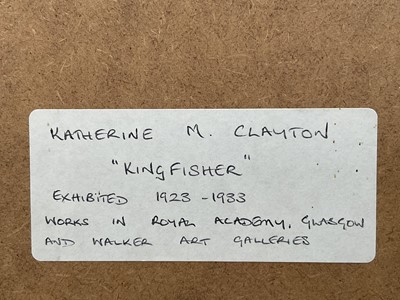 KATHERINE M. CLAYTON.
"KINGFISHER"
EXHIBITED 1923 - 1933
WORKS IN ROYAL ACADEMY, GLASGOW
AND WALKER ART GALLERIES